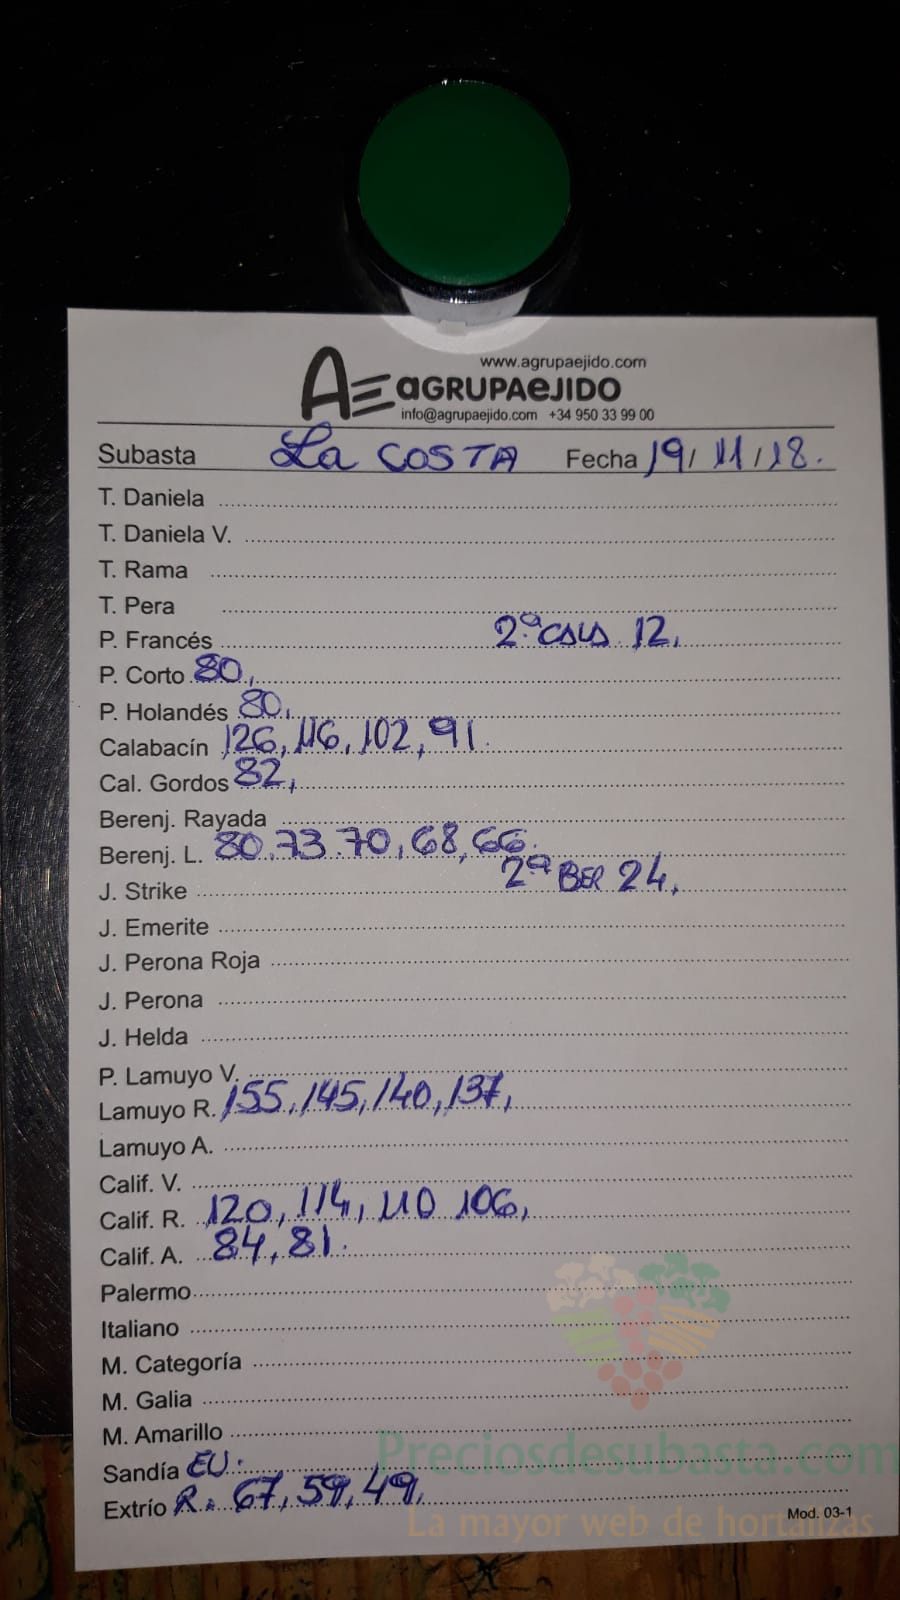 www.agrupaejido.com
AE aGRUPAeJIDO
info@agrupaejido.com +34 950 33 99 00
Subasta La COSTA Fecha 19/11/18.
T. Daniela
T. Daniela V.
T. Rama
T. Pera
P. Francés 2ª CALA 12,
P. Corto 80,
P. Holandés 80,
Calabacín 126, 116, 102, 91.
Cal. Gordos 82,
Berenj. Rayada
Berenj. L. 80. 73. 70, 68, 66.
2ª BER 24,
J. Strike
J. Emerite
J. Perona Roja
J. Perona
J. Helda
P. Lamuyo V.
Lamuyo R. 155, 145, 140, 137,
Lamuyo A.
Calif. V.
Calif. R. 120, 114, 110 106,
Calif. A. 84, 81.
Palermo
Italiano
M. Categoría
M. Galia
M. Amarillo
Sandía EU.
Extrío R. 67, 59, 49,
Mod. 03-1
Preciosdesubasta.com
La mayor web de hortalizas